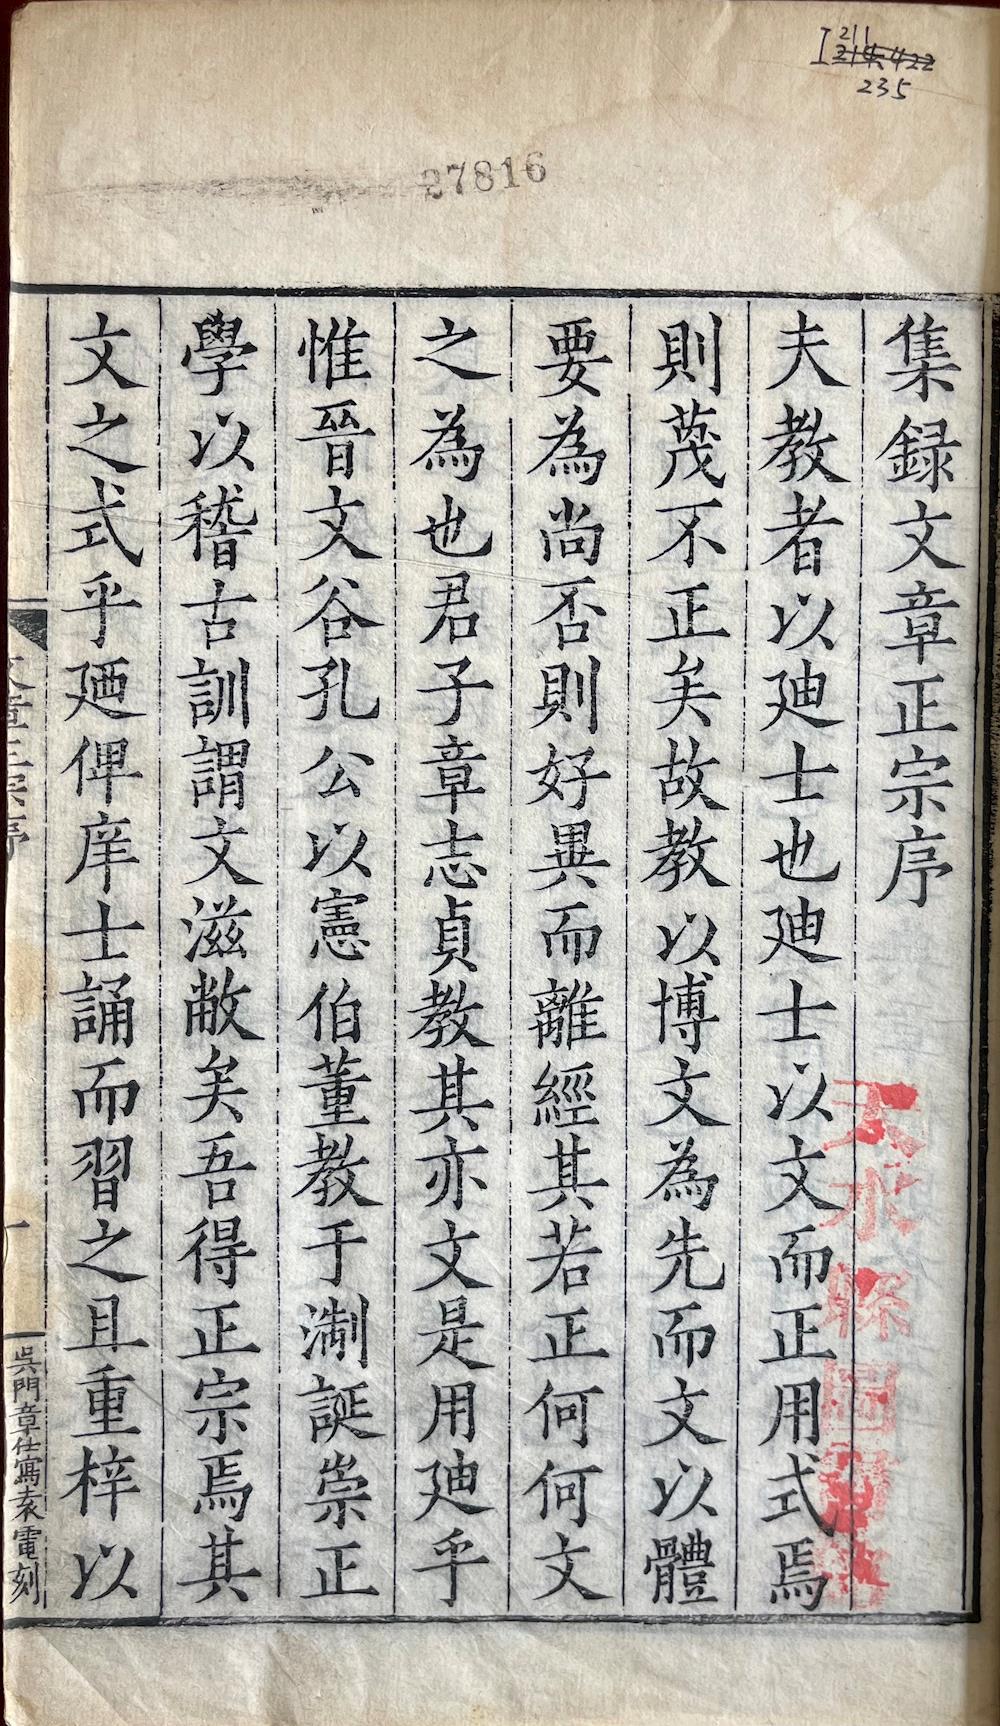 I 211
214.422
235
27816
集録文章正宗序
夫教者以廸士也廸士以文而正用式焉
則茂不正矣故教以博文為先而文以體
要為尚否則好異而離經其若正何何文
之為也君子章志貞教其亦文是用廸乎
惟晉文谷孔公以憲伯董教于淛誕崇正
學以稽古訓謂文滋敝矣吾得正宗焉其
文之式乎廼俾庠士誦而習之且重梓以
文章正宗序
一
吳門章仕寫袁電刻
天水縣圖書